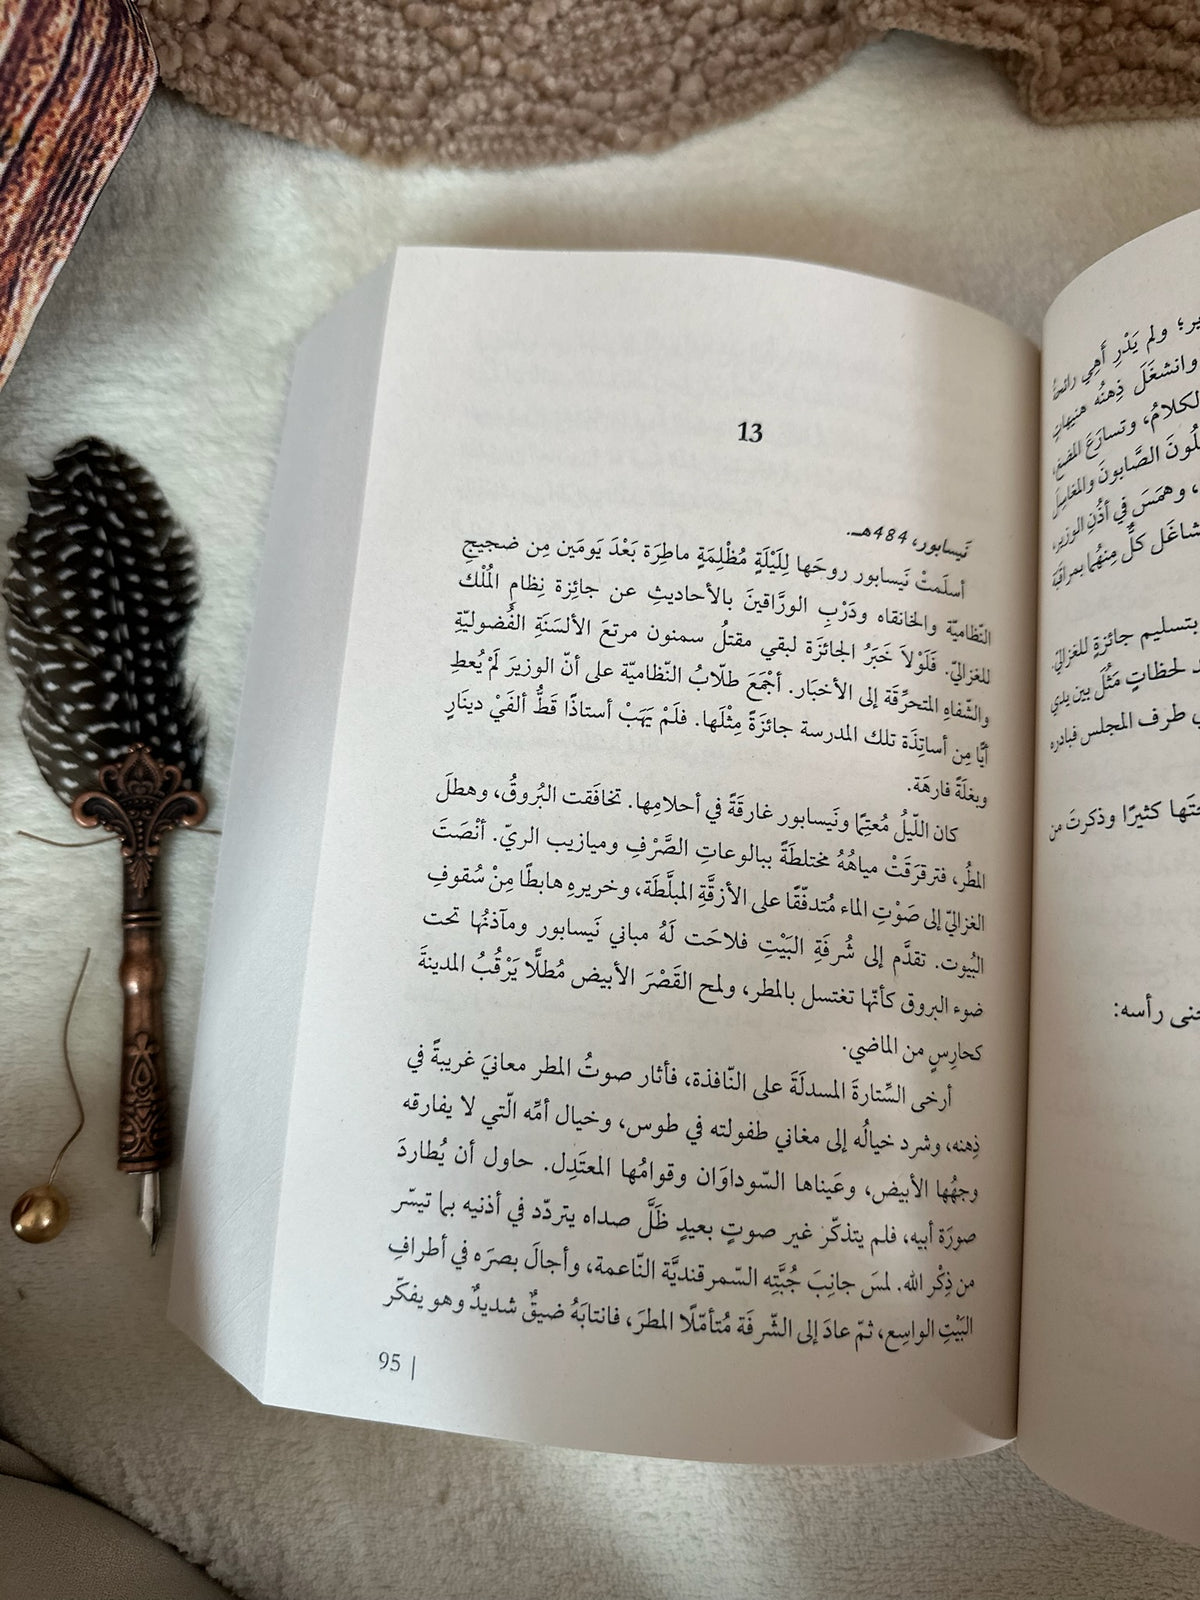 13
نَيسابور، 484هـ.
أسلَمتْ نَيسابور روحَها لِلَيْلَةٍ مُظْلِمَةٍ ماطِرَة بَعْدَ يَومَين مِن ضجيجِ
النّظاميّة والخانقاه ودَرْبِ الورَّاقينَ بالأحاديثِ عن جائِزة نِظامِ المُلْك
للغزاليّ. فَلَوْلاَ خَبَرُ الجائزَة لبقي مقتلُ سمنون مرتعَ الألسَنَةِ الفُضوليّةِ
والشّفاهِ المتحرِّقَة إلى الأخبَار. أجْمَعَ طلّابُ النّظاميّة على أنّ الوزيرَ لَمْ يُعطِ
أيًّا مِن أساتِذَة تلك المدرسة جائزَةً مِثْلَها. فلَمْ يَهَبْ أستاذًا قَطُّ ألفَيْ دينَارٍ
وبغلَةً فارهَة.
كان اللّيلُ مُعتِمًا ونَيسابور غارقَةً في أحلامِها. تخافَقت البُروقُ، وهطلَ
المطُر، فترقرَقَتْ مياهُهُ مختلطَةً ببالوعاتِ الصَّرْفِ وميازيب الريّ. أنْصَتَ
الغزاليّ إلى صَوْتِ الماء مُتدفّقًا على الأزقَّةِ المبلَّطَة، وخريرهِ هابطًا مِنْ سُقوفِ
البُيوت. تقدَّم إلى شُرفَةِ البَيْتِ فلاحَت لَهُ مباني نَيسابور ومآذنُها تحت
ضوء البروق كأنّها تغتسل بالمطر، ولمح القَصْرَ الأبيض مُطلًّا يَرْقُبُ المدينةَ
كحارِسٍ من الماضي.
أرخى السِّتارةَ المسدلَةَ على النّافذة، فأثار صوتُ المطر معانيَ غريبةً في
ذِهنه، وشرد خيالُه إلى مغاني طفولته في طوس، وخيال أمّه الّتي لا يفارقه
وجهُها الأبيض، وعَيناها السّوداوَان وقوامُها المعتَدِل. حاول أن يُطاردَ
صورَة أبيه، فلم يتذكّر غير صوتٍ بعيدٍ ظَلَّ صداه يتردّد في أذنيه بما تيسّر
من ذِكْر الله. لمسَ جانِبَ جُبَّتِه السّمرقنديَّة النّاعمة، وأجالَ بصرَه في أطرافِ
البَيْتِ الواسِع، ثمّ عادَ إلى الشّرفَة مُتأمّلًا المطرَ، فانتابَهُ ضيقٌ شديدٌ وهو يفكّر
95 |
ولم يَدْرِ أَهِي
وانشغَلَ ذِهنُه هنيهاتٍ
وتسارَعَ المضغ،
الصَّابونَ والمغاسِلَ
وهمَسَ في أذُن الوزير،
كلٌّ منهُما بمراقَبَة
بتسليم جائزةٍ للغزاليّ.
لحظاتٍ مَثُلَ بين يدي
طرف المجلس فبادره
كثيرًا وذكرتَ من
رأسه: